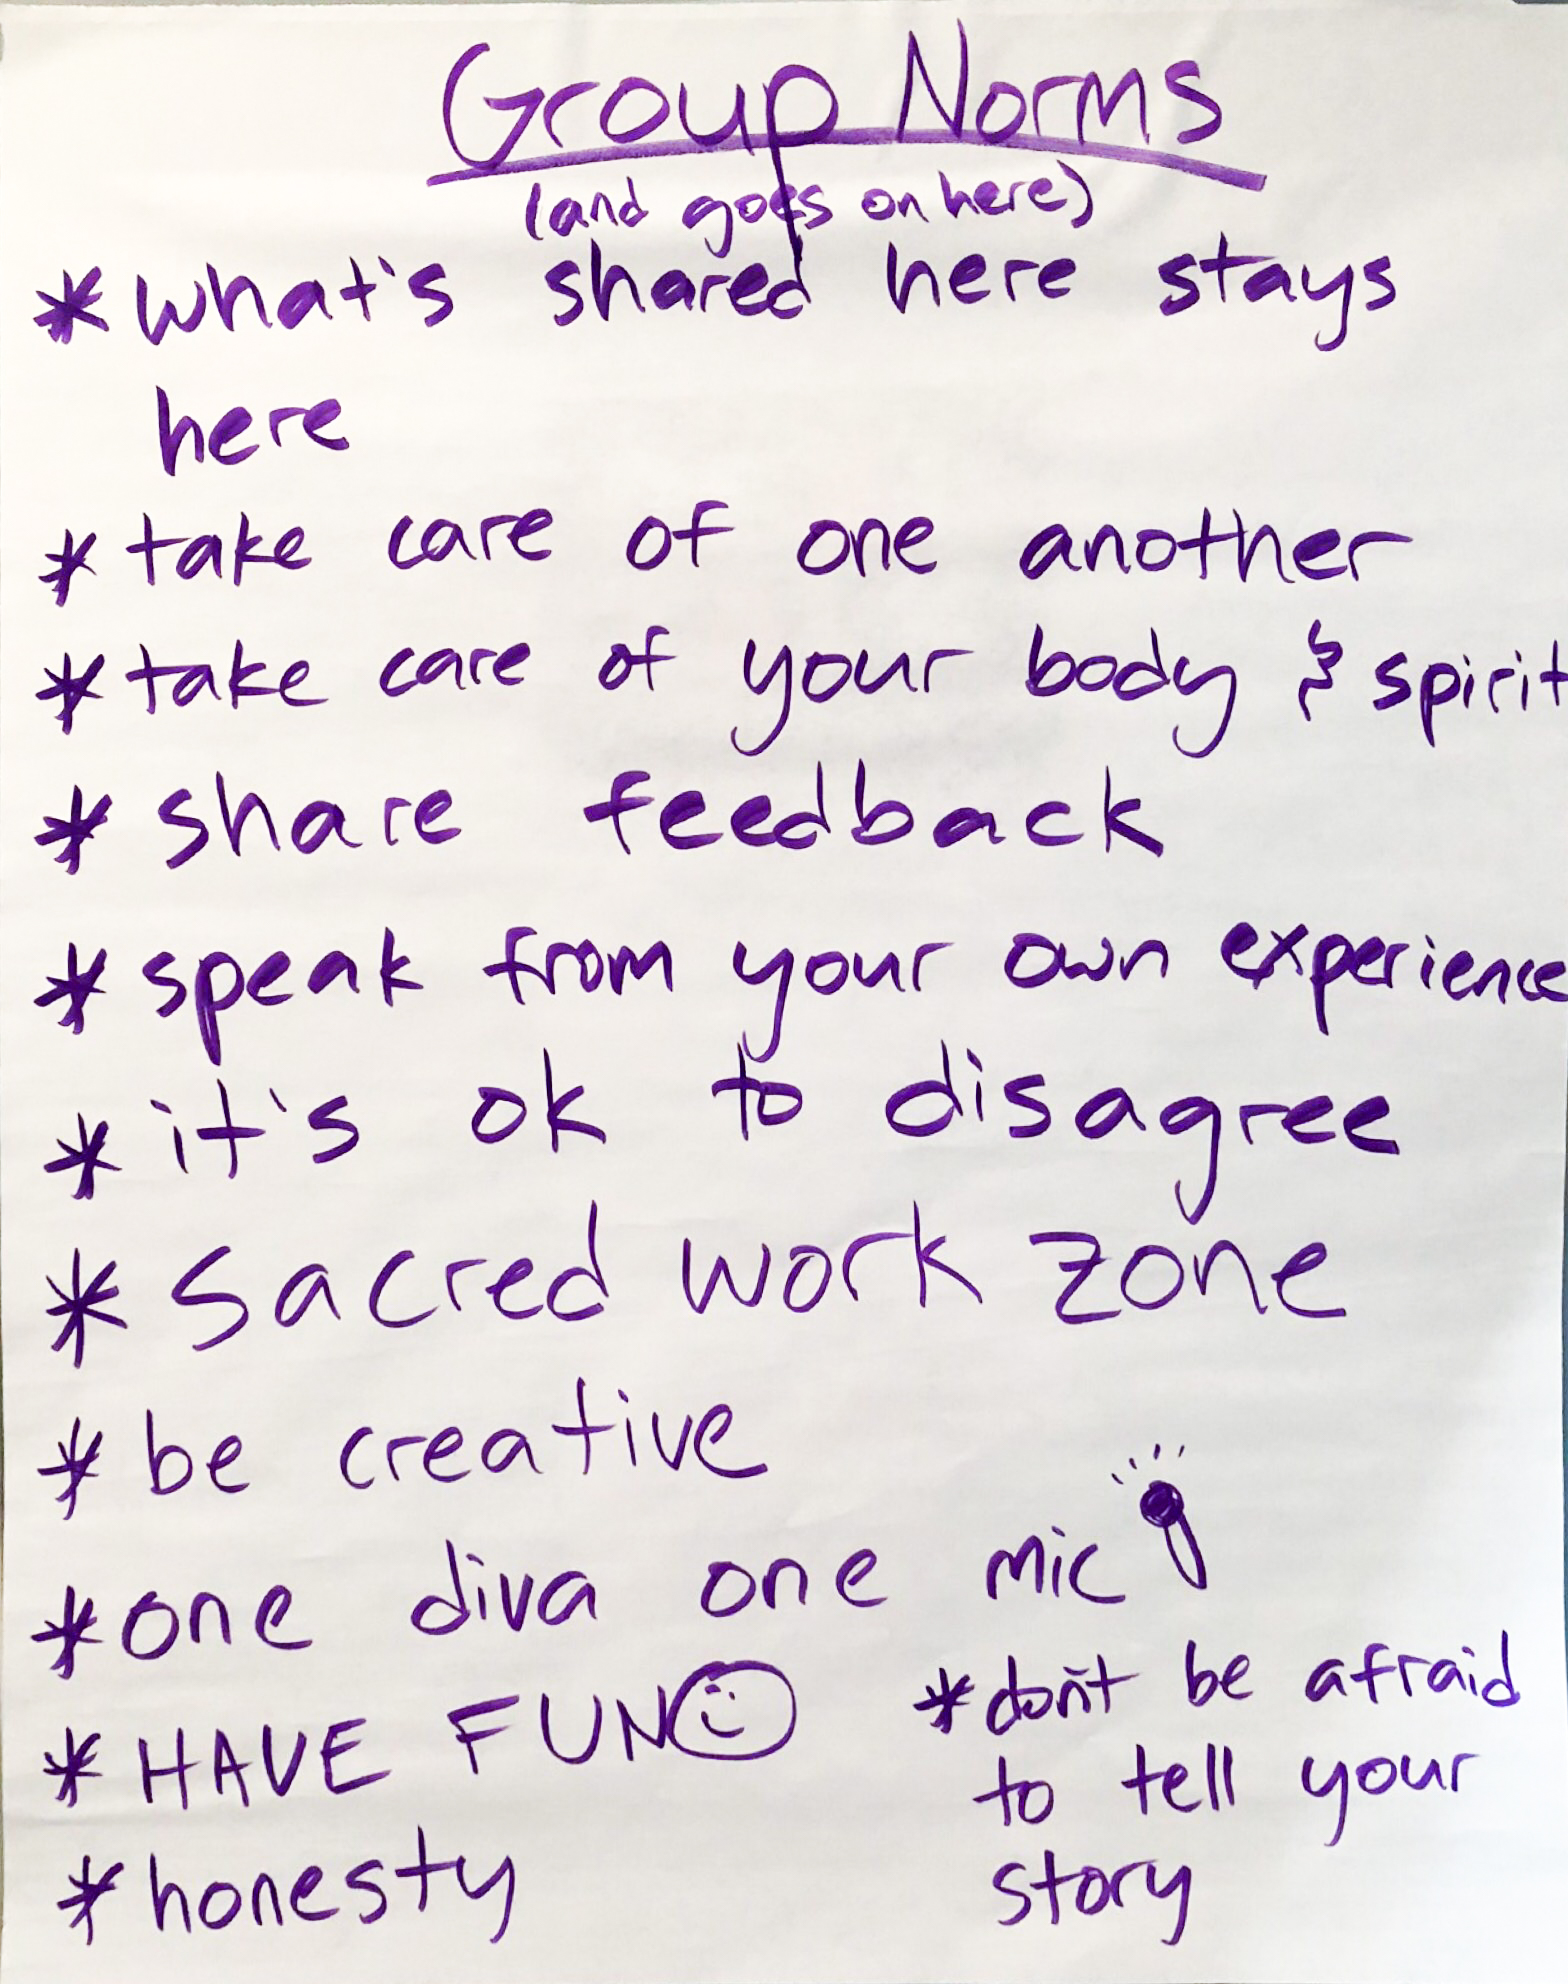 Group Norms
(and goes on here)
* what's shared here stays
here
* take care of one another
* take care of your body & spirit
* share feedback
* speak from your own experience
* it's ok to disagree
* sacred work zone
* be creative
* one diva one mic
* HAVE FUN
* honesty
* don't be afraid
to tell your
story